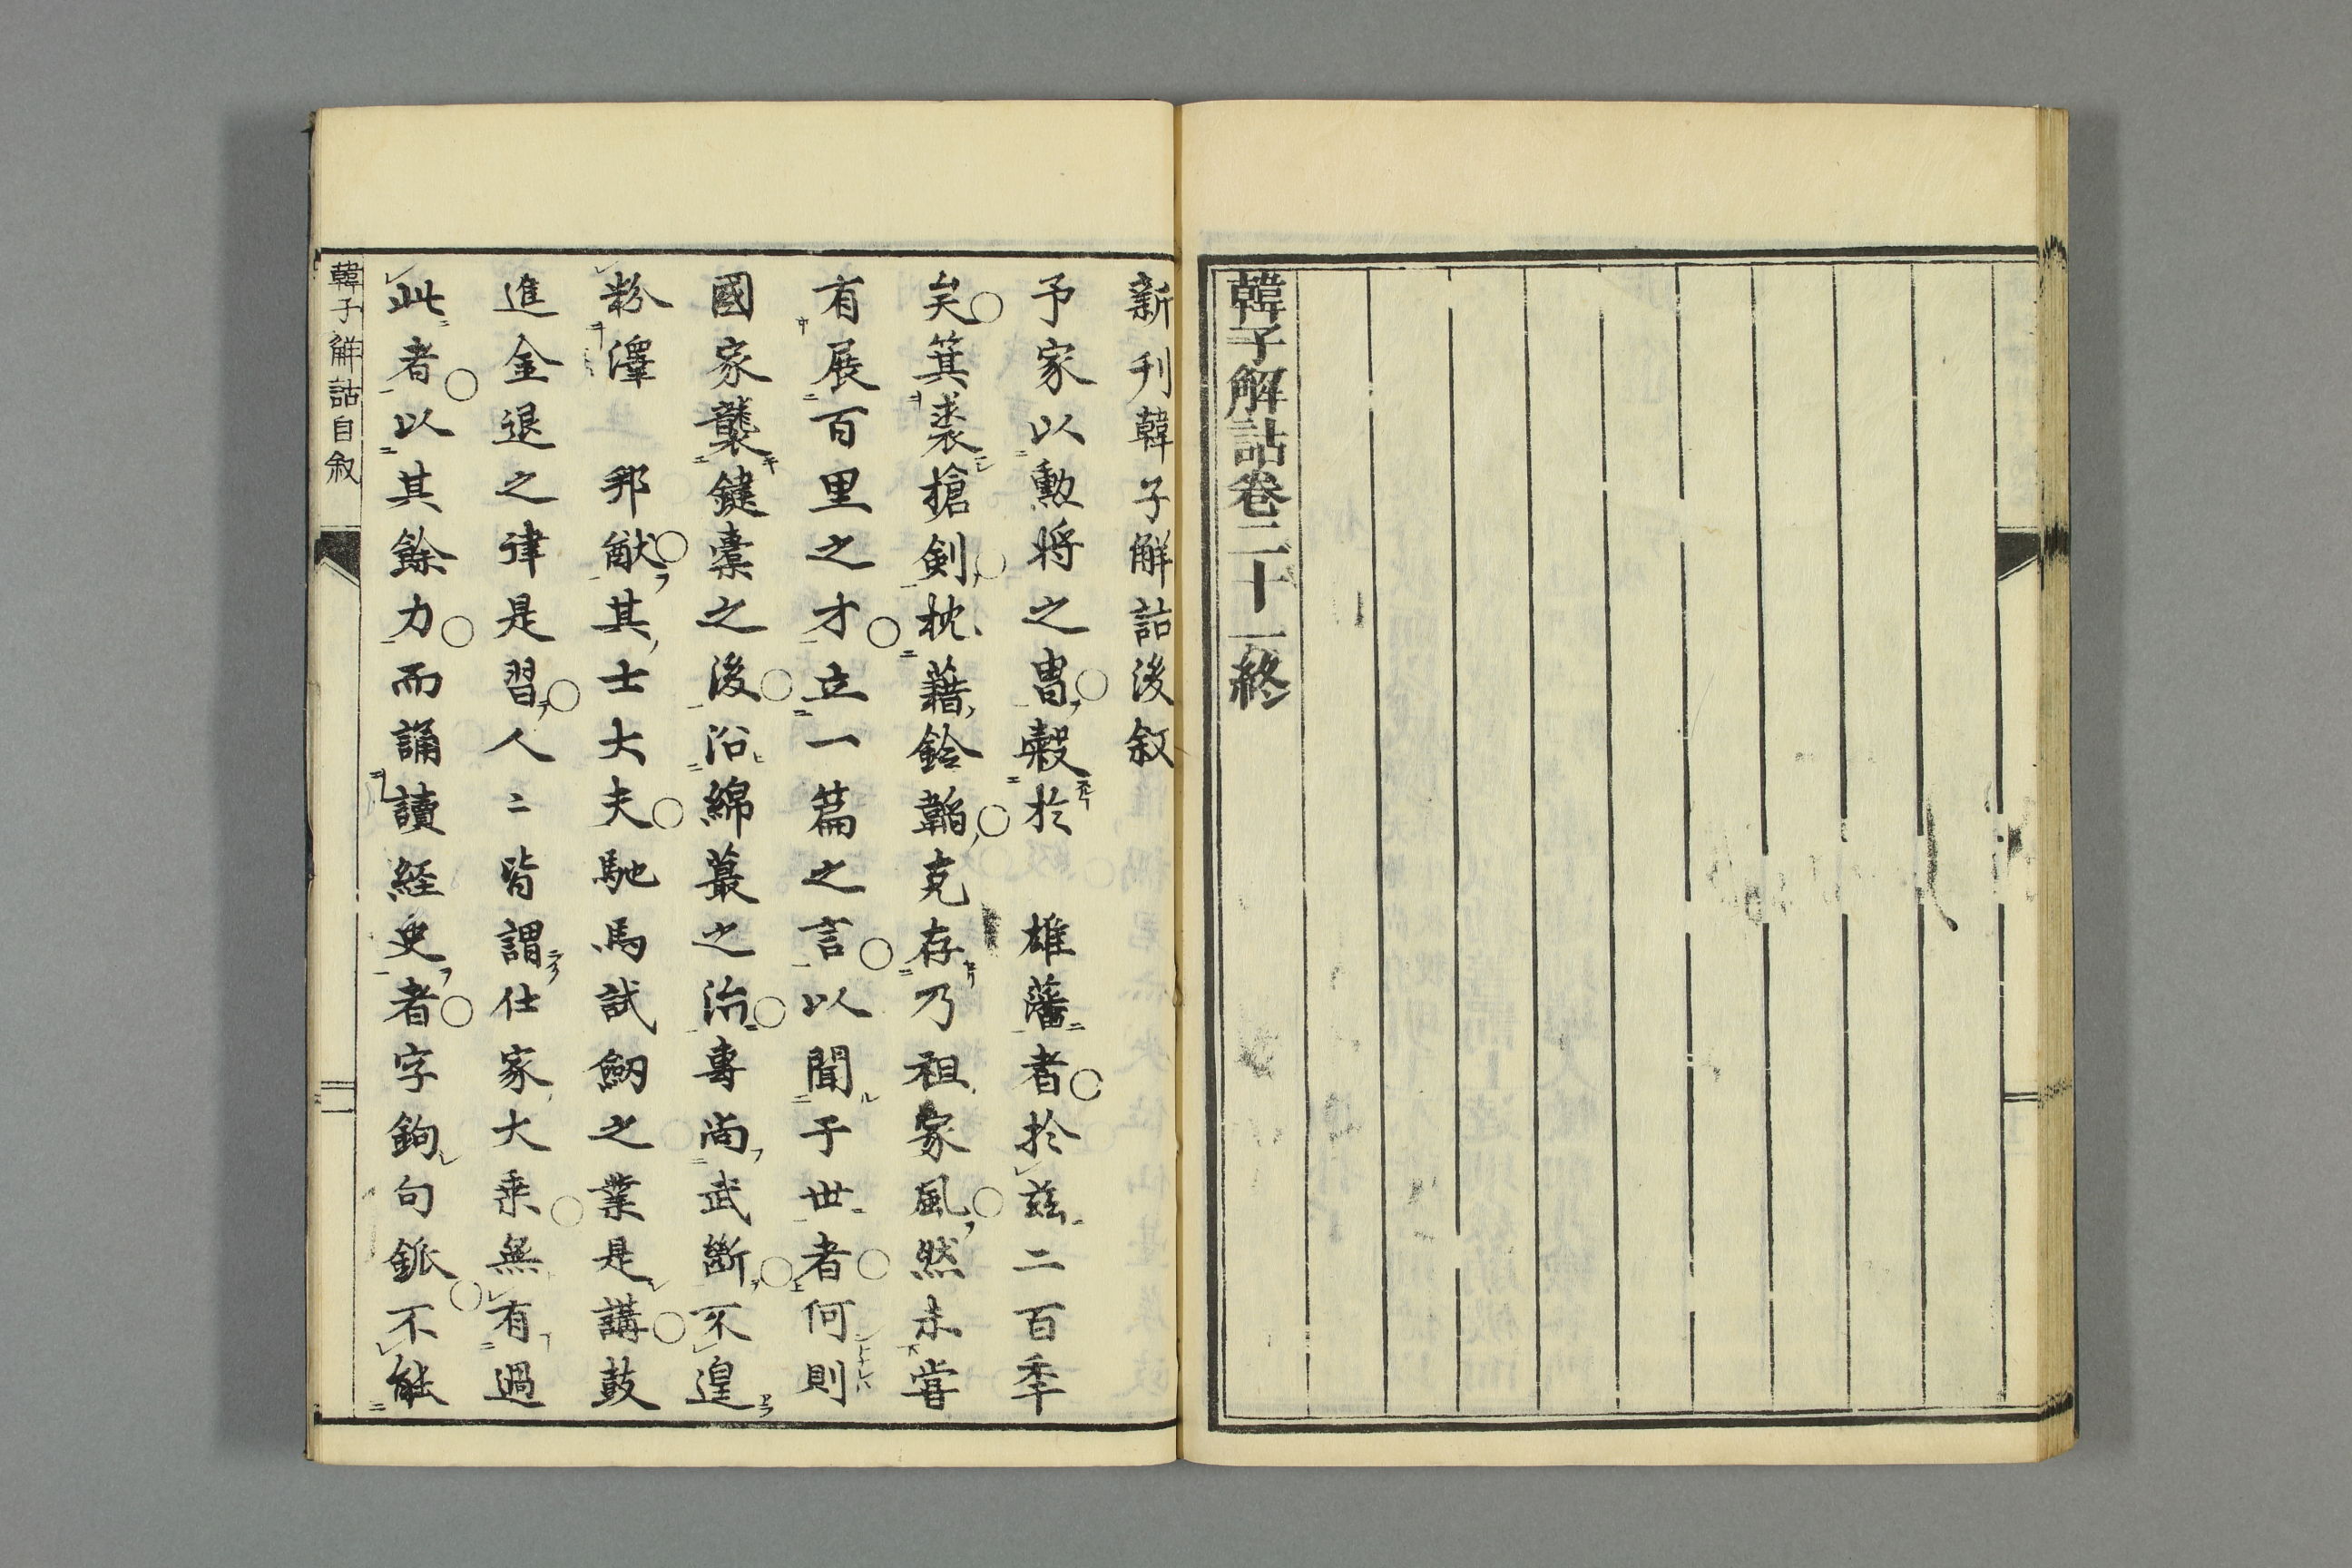 韓子解詁卷二十一終
新刊韓子解詁後敘
予家以勲将之冑穀於　雄藩者於兹二百季
矣箕裘搶剣枕藉鈴韜克存乃祖家風然未甞
有展百里之才立一篇之言以聞于世者何則
國家襲鍵櫜之後沿綿蕞之治專尚武斷不遑
粉澤　邦猷其士大夫馳馬試劔之業是講鼓
進金退之律是習人〻皆謂仕家大乗無有過
此者以其餘力而誦讀経史者字鉤句鈲不能
韓子解詁自叙